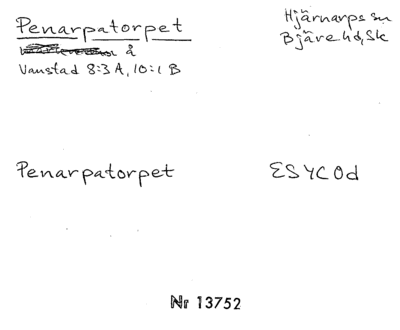 Penarpatorpet
å
Vanstad 8:3 A, 10:1 B
Hjärnarps sn
Bjäre hd, Sk
Penarpatorpet
ESYCOd
Nr 13752